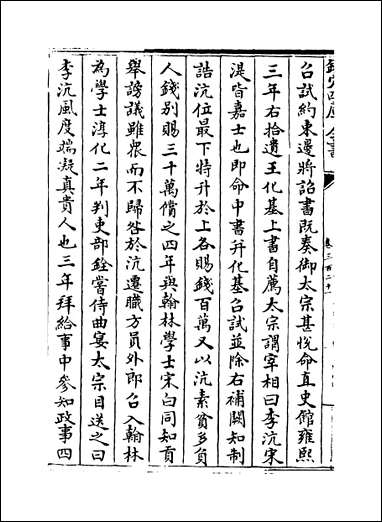 欽定四庫全書
卷三百二十一
召試約束邊將詔書既奏御太宗甚悅命直史館雍熙
三年右拾遺王化基上書自薦太宗謂宰相曰李沆宋
湜皆嘉士也即命中書并化基召試並除右補闕知制
誥沆位最下特升於上各賜錢百萬又以沆素貧多負
人錢別賜三十萬償之四年與翰林學士宋白同知貢
舉謗議雖衆而不歸咎於沆遷職方員外郎召入翰林
為學士淳化二年判吏部銓嘗侍曲宴太宗目送之曰
李沆風度端凝真貴人也三年拜給事中參知政事四